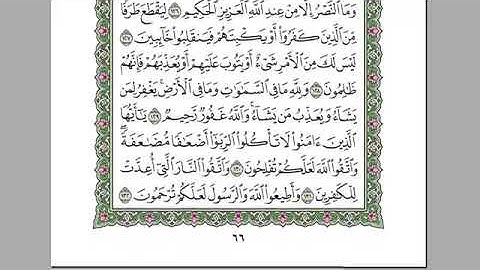 وَمَا ٱلنَّصْرُ إِلَّا مِنْ عِندِ ٱللَّهِ ٱلْعَزِيزِ ٱلْحَكِيمِ ١٢٦ لِيَقْطَعَ طَرَفًا
مِّنَ ٱلَّذِينَ كَفَرُوٓا۟ أَوْ يَكْبِتَهُمْ فَيَنقَلِبُوا۟ خَآئِبِينَ ١٢٧
لَيْسَ لَكَ مِنَ ٱلْأَمْرِ شَىْءٌ أَوْ يَتُوبَ عَلَيْهِمْ أَوْ يُعَذِّبَهُمْ فَإِنَّهُمْ
ظَـٰلِمُونَ ١٢٨ وَلِلَّهِ مَا فِى ٱلسَّمَـٰوَٰتِ وَمَا فِى ٱلْأَرْضِ ۚ يَغْفِرُ لِمَن
يَشَآءُ وَيُعَذِّبُ مَن يَشَآءُ ۚ وَٱللَّهُ غَفُورٌ رَّحِيمٌ ١٢٩ يَـٰٓأَيُّهَا
ٱلَّذِينَ ءَامَنُوا۟ لَا تَأْكُلُوا۟ ٱلرِّبَوٰٓا۟ أَضْعَـٰفًا مُّضَـٰعَفَةً ۖ
وَٱتَّقُوا۟ ٱللَّهَ لَعَلَّكُمْ تُفْلِحُونَ ١٣٠ وَٱتَّقُوا۟ ٱلنَّارَ ٱلَّتِىٓ أُعِدَّتْ
لِلْكَـٰفِرِينَ ١٣١ وَأَطِيعُوا۟ ٱللَّهَ وَٱلرَّسُولَ لَعَلَّكُمْ تُرْحَمُونَ ١٣٢
٦٦